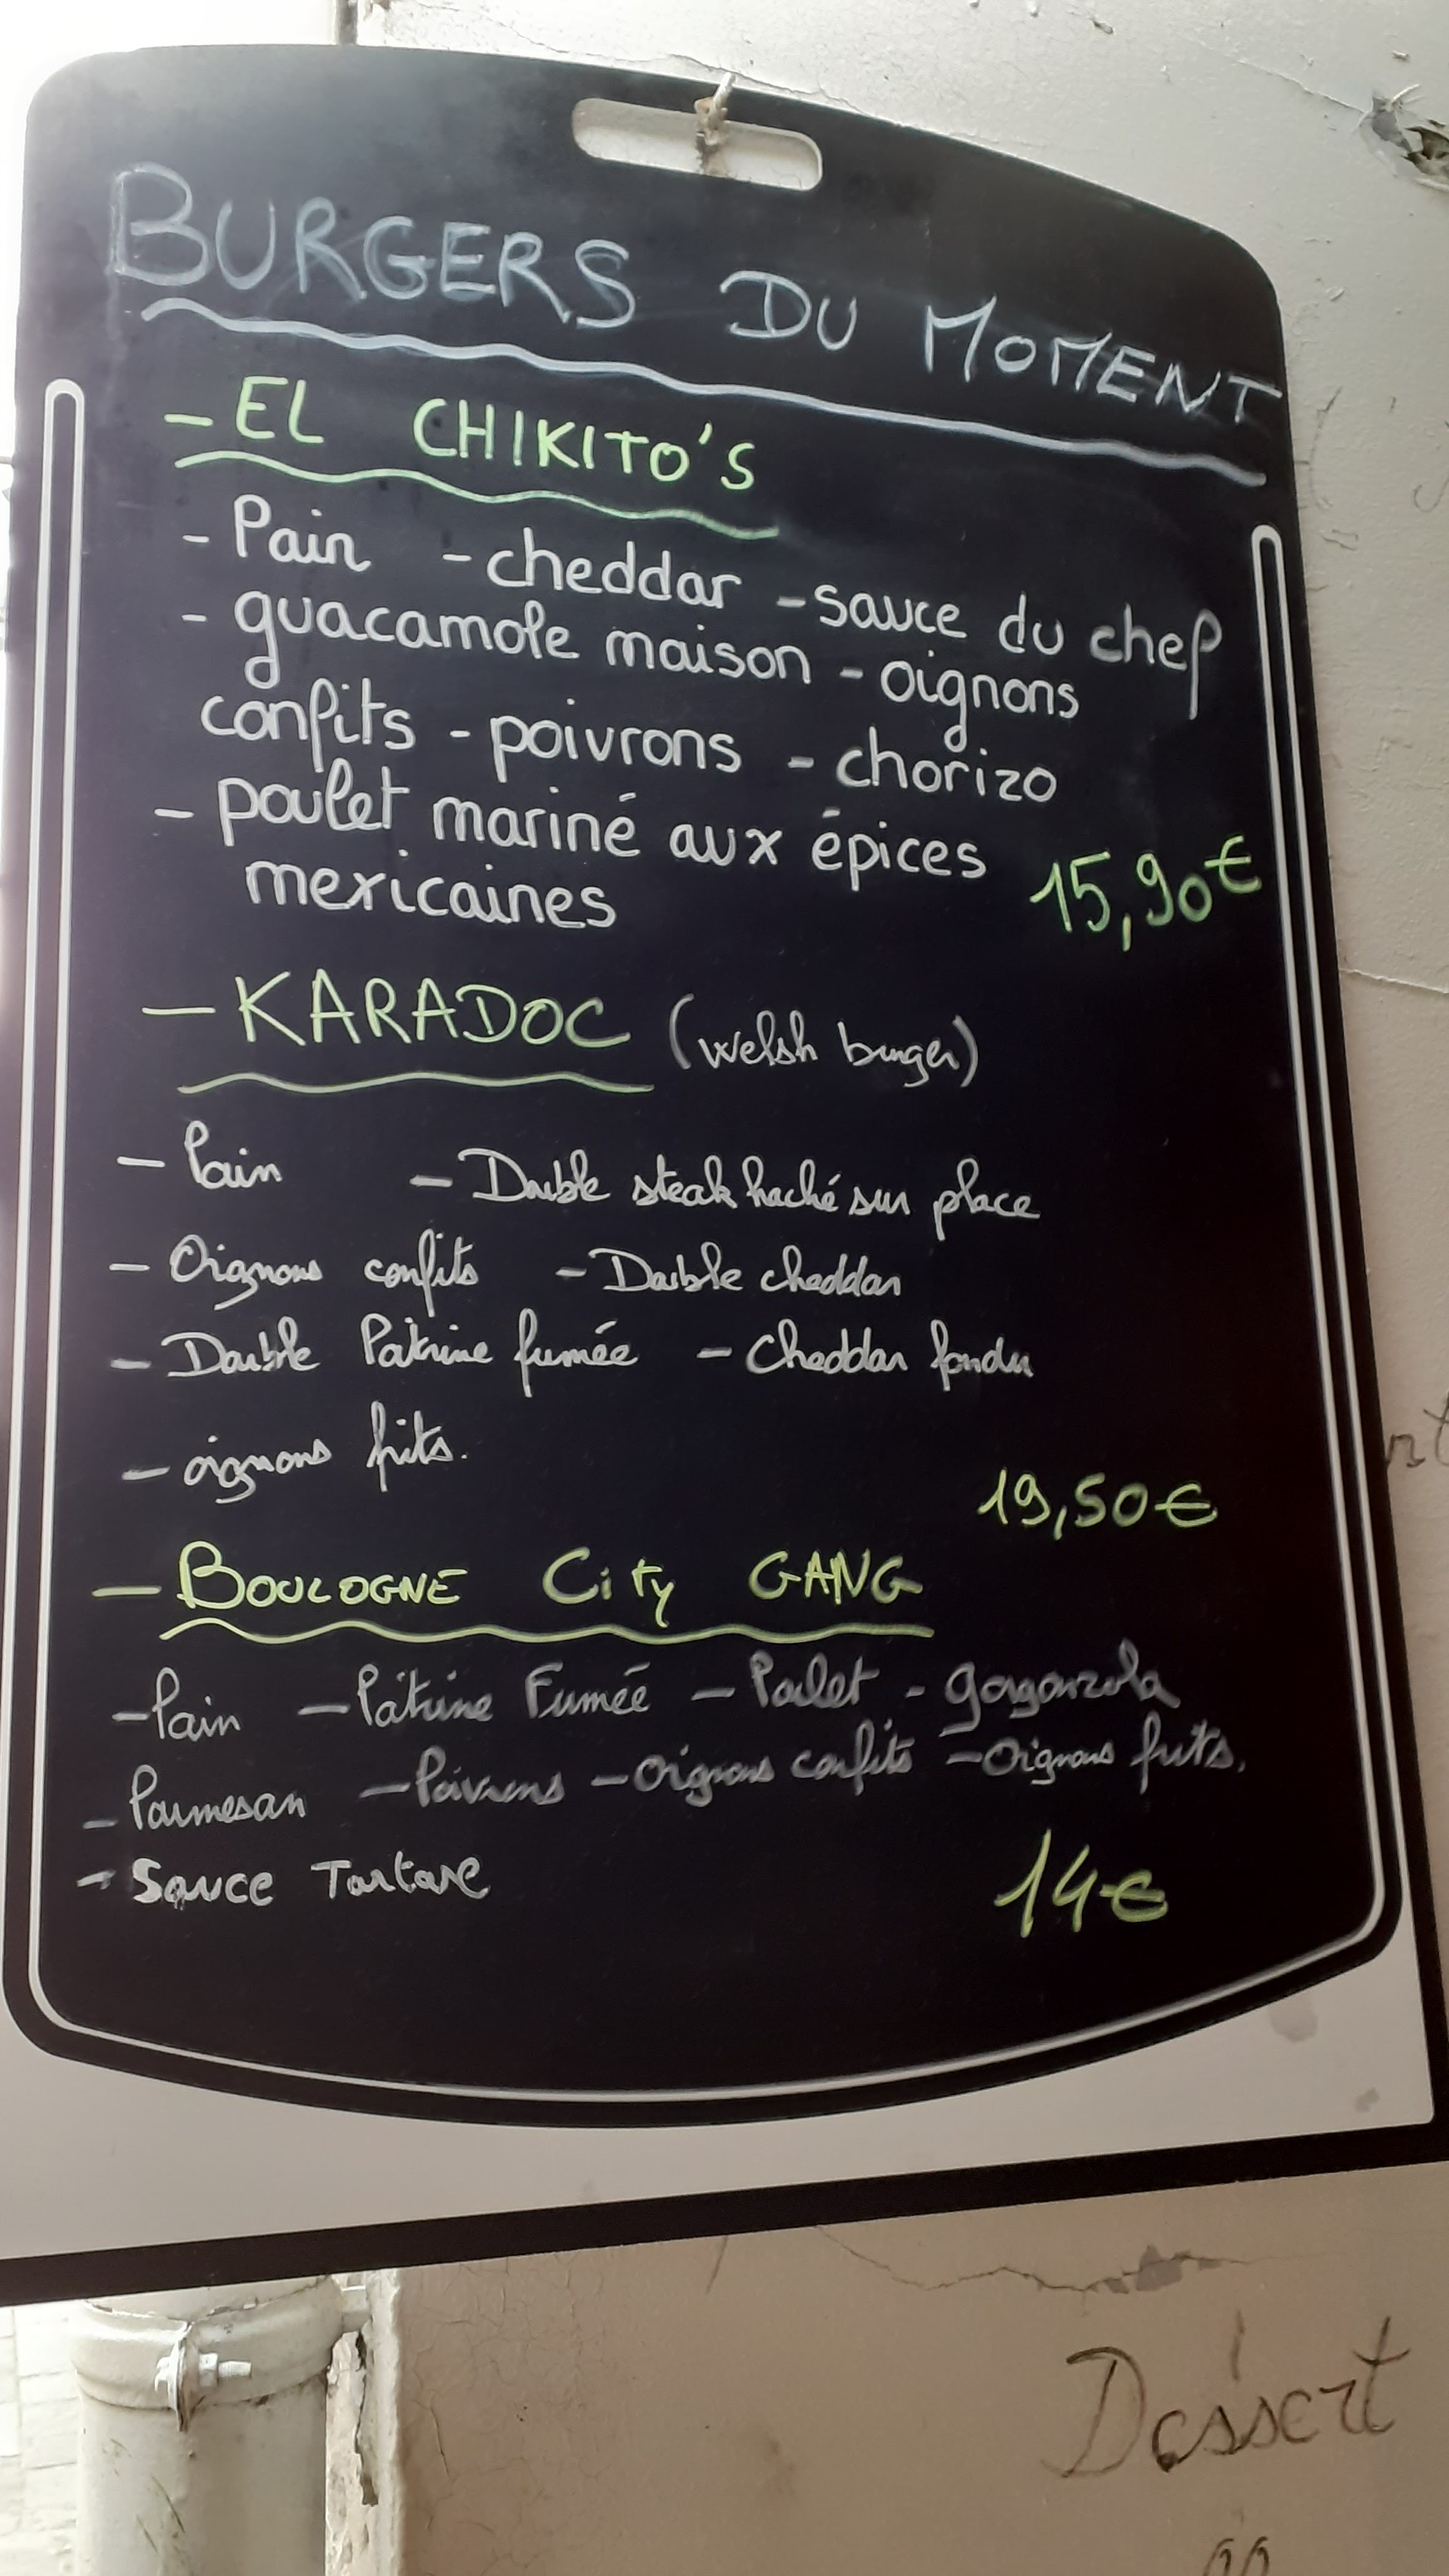 BURGERS DU MOMENT
- EL CHIKITO'S
- Pain - cheddar - sauce du chef
- guacamole maison - oignons
confits - poivrons - chorizo
- poulet mariné aux épices
mexicaines 15,90€
- KARADOC (welsh burger)
- Pain - Double steak haché sur place
- Oignons confits - Double cheddar
- Double Poitrine fumée - Cheddar fondu
- oignons frits.
19,50€
- BOULOGNE City GANG
- Pain - Poitrine Fumée - Poulet - gorgonzola
- Parmesan - Poivrons - Oignons confits - Oignons frits.
- Sauce Tartare 14€
Dessert